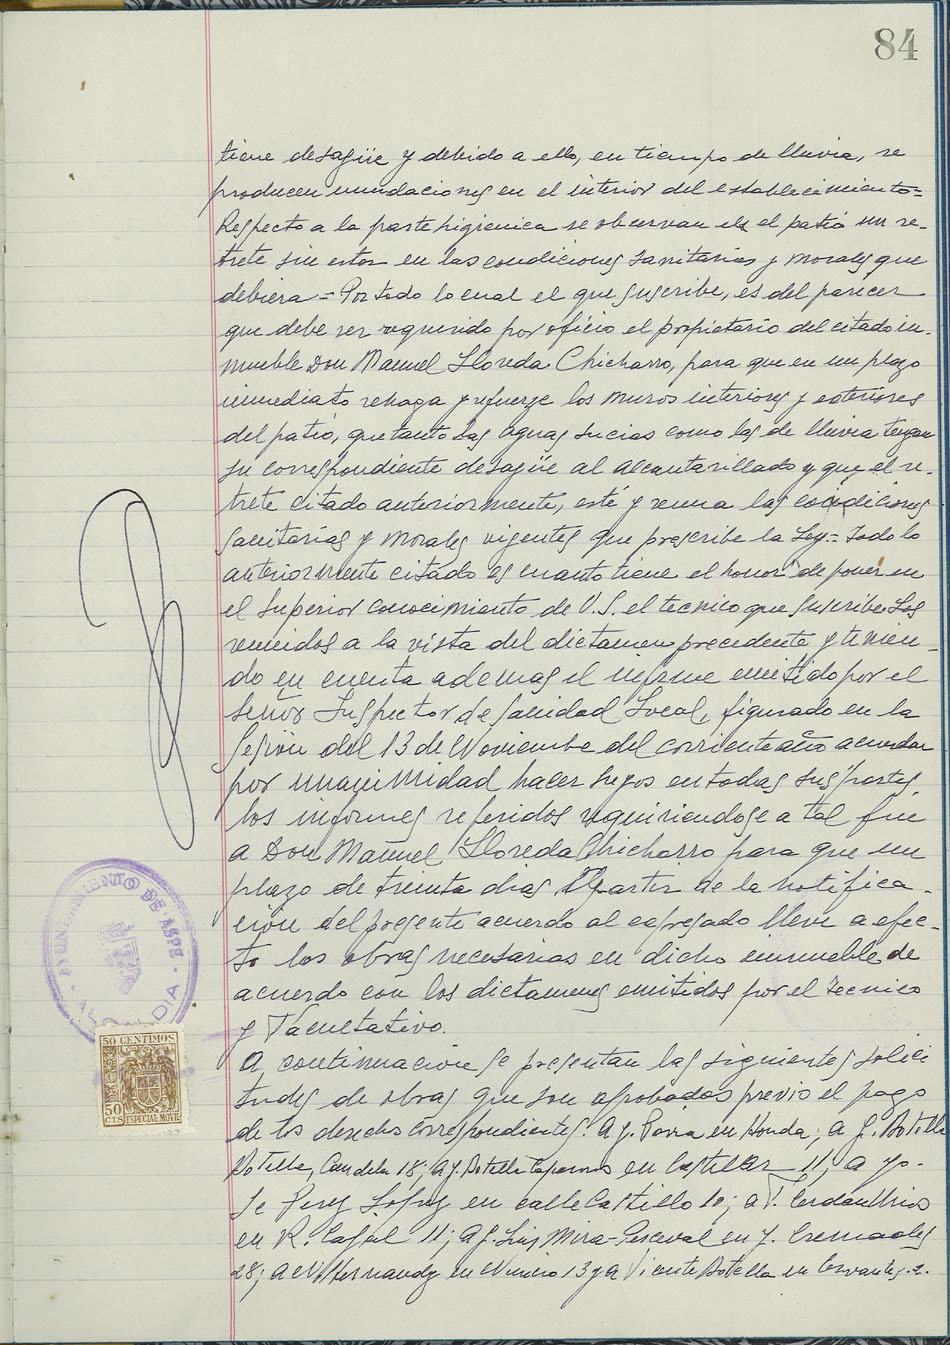 84
tiene desagüe y debido a ello, en tiempo de lluvia, se
producen inundaciones en el interior del establecimiento=
Respecto a la parte higienica se observan en el patio un re-
trete sin estar en las condiciones sanitarias y morales que
debiera = Por todo lo cual el que suscribe, es del parecer
que debe ser requerido por oficio el propietario del citado in-
mueble Don Manuel Lloreda Chicharro, para que en un plazo
inmediato rehaga y refuerze los muros interiores y exteriores
del patio, que tanto las aguas sucias como las de lluvia tengan
su correspondiente desagüe al alcantarillado y que el re-
trete citado anteriormente, esté y reuna las condiciones
sanitarias y morales vigentes que prescribe la Ley.= Todo lo
anteriormente citado es cuanto tiene el honor de poner en
el superior conocimiento de V.S. el tecnico que suscribe. Los
reunidos a la vista del dictamen precedente y tenien-
do en cuenta ademas el informe emitido por el
señor Inspector de Sanidad Local, figurado en la
sesión del 13 de Noviembre del corriente año acuerdan
por unanimidad hacer suyos en todas sus partes
los informes referidos requiriendose a tal fin
a Don Manuel Lloreda Chicharro para que en
plazo de treinta dias a partir de la notifica-
ción del presente acuerdo al expresado lleve a efec-
to las obras necesarias en dicho inmueble de
acuerdo con los dictamenes emitidos por el Tecnico
y Facultativo.
A continuación se presentan las siguientes solici
tudes de obras que son aprobadas previo el pago
de los derechos correspondientes: a J. Pavia en Honda; a J. Botella
Botella, Candela 18; a J. Botella en Castelar 11; a Jo-
se Perez Lopez en calle Castillo 10; a
en R. Cajal 11; a J. Luis Mira-Perceval en J. Cremades
28; a M Hernandez en 13 y a Vicente Botella en Cervantes 2.
AYUNTAMIENTO DE ASPE
ALCALDIA
50 CENTIMOS
50
CTS
ESPECIAL MOVIL